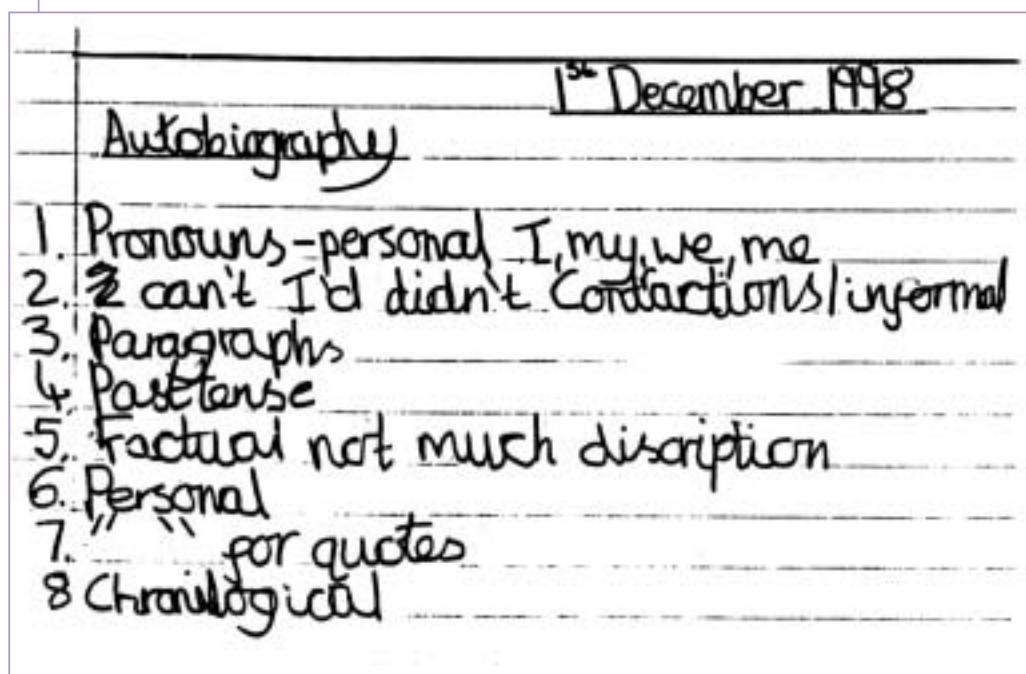 1st December 1998
Autobiography
1. Pronouns-personal I, my, we, me
2. can't I'd didn't Contactions/informal
3. Paragraphs
4. Past tense
5. Factual not much discription
6. Personal
7. " " for quotes
8 Chronilogical